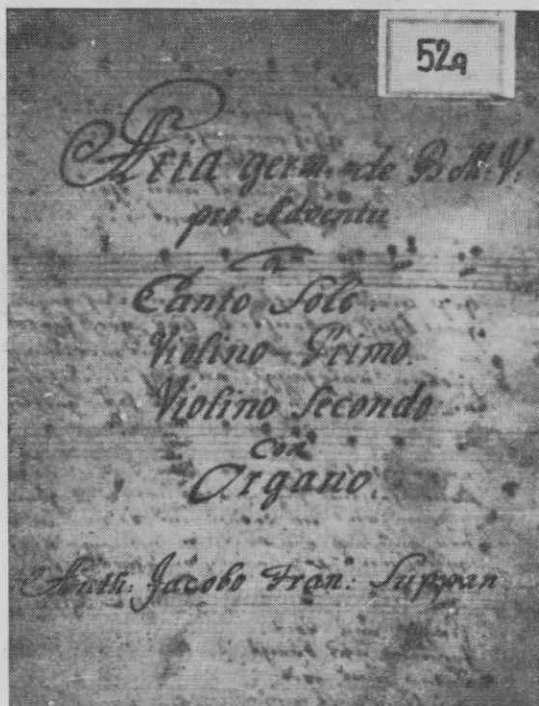 52a
Aria germ. de B.M.V.
pro Adventu
a
Canto Solo.
Violino Primo.
Violino Secondo
con
Organo.
Auth: Jacobo Fran: Suppan